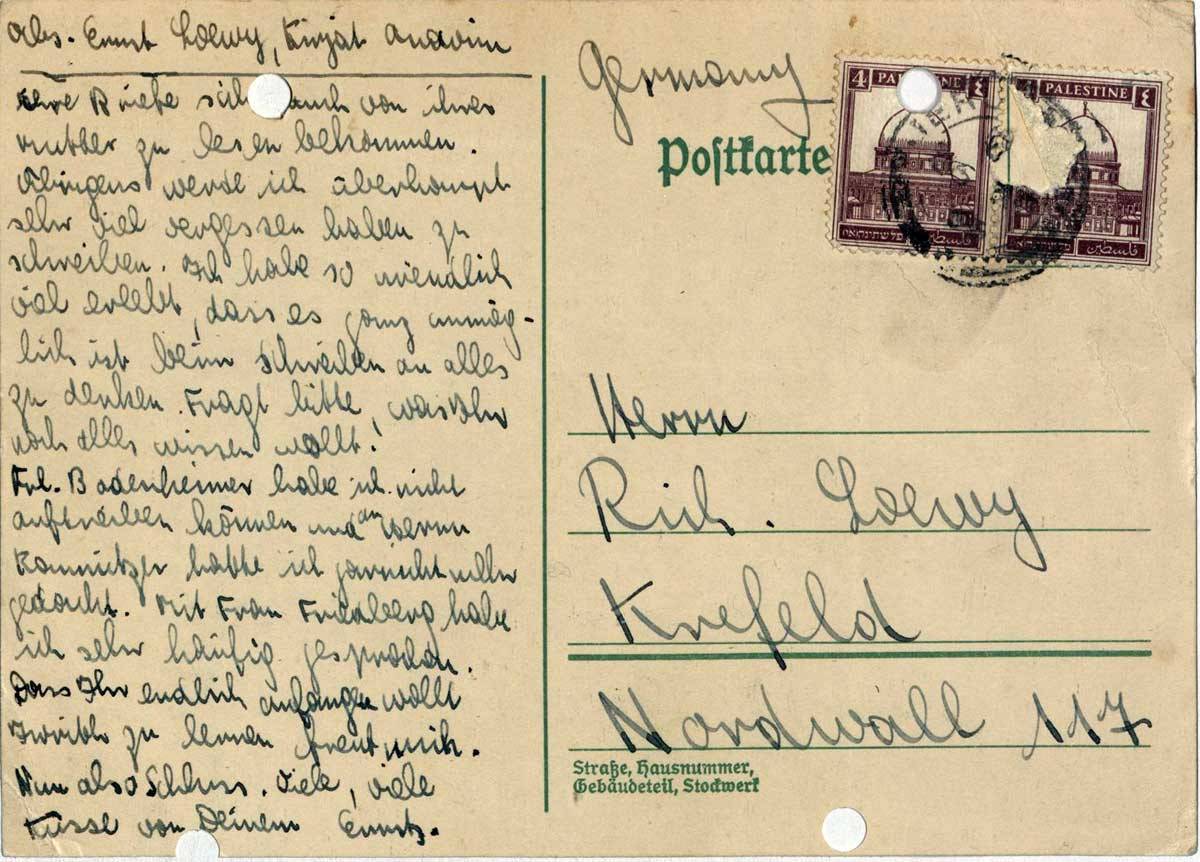 Abs. Ernst Loewy, Kirjat Anavim
ihre Briefe sich auch von ihres
Mutter zu lesen bekommen.
Übrigens werde ich überhaupt
sehr viel vergessen haben zu
schreiben. Ich habe so unendlich
viel erlebt, dass es ganz unmög-
lich ist beim Schreiben an alles
zu denken. Fragt bitte, was Ihr
noch alles wissen wollt!
Frl. Bodenheimer habe ich nicht
auftreiben können und an Herrn
hatte ich garnicht mehr
gedacht. Mit Frau Friedberg habe
ich sehr häufig gesprochen.
Dass Ihr endlich anfangen wollt
Iwrith zu lernen freut mich.
Nun also Schluss. Viele, viele
Küsse von Deinem Ernst.
Germany
Postkarte
4 PALESTINE ٤
פלשתינה א״י فلسطين
4 PALESTINE ٤
פלשתינה א״י فلسطين
Herrn
Rich. Loewy
Krefeld
Nordwall 117
Straße, Hausnummer,
Gebäudeteil, Stockwerk